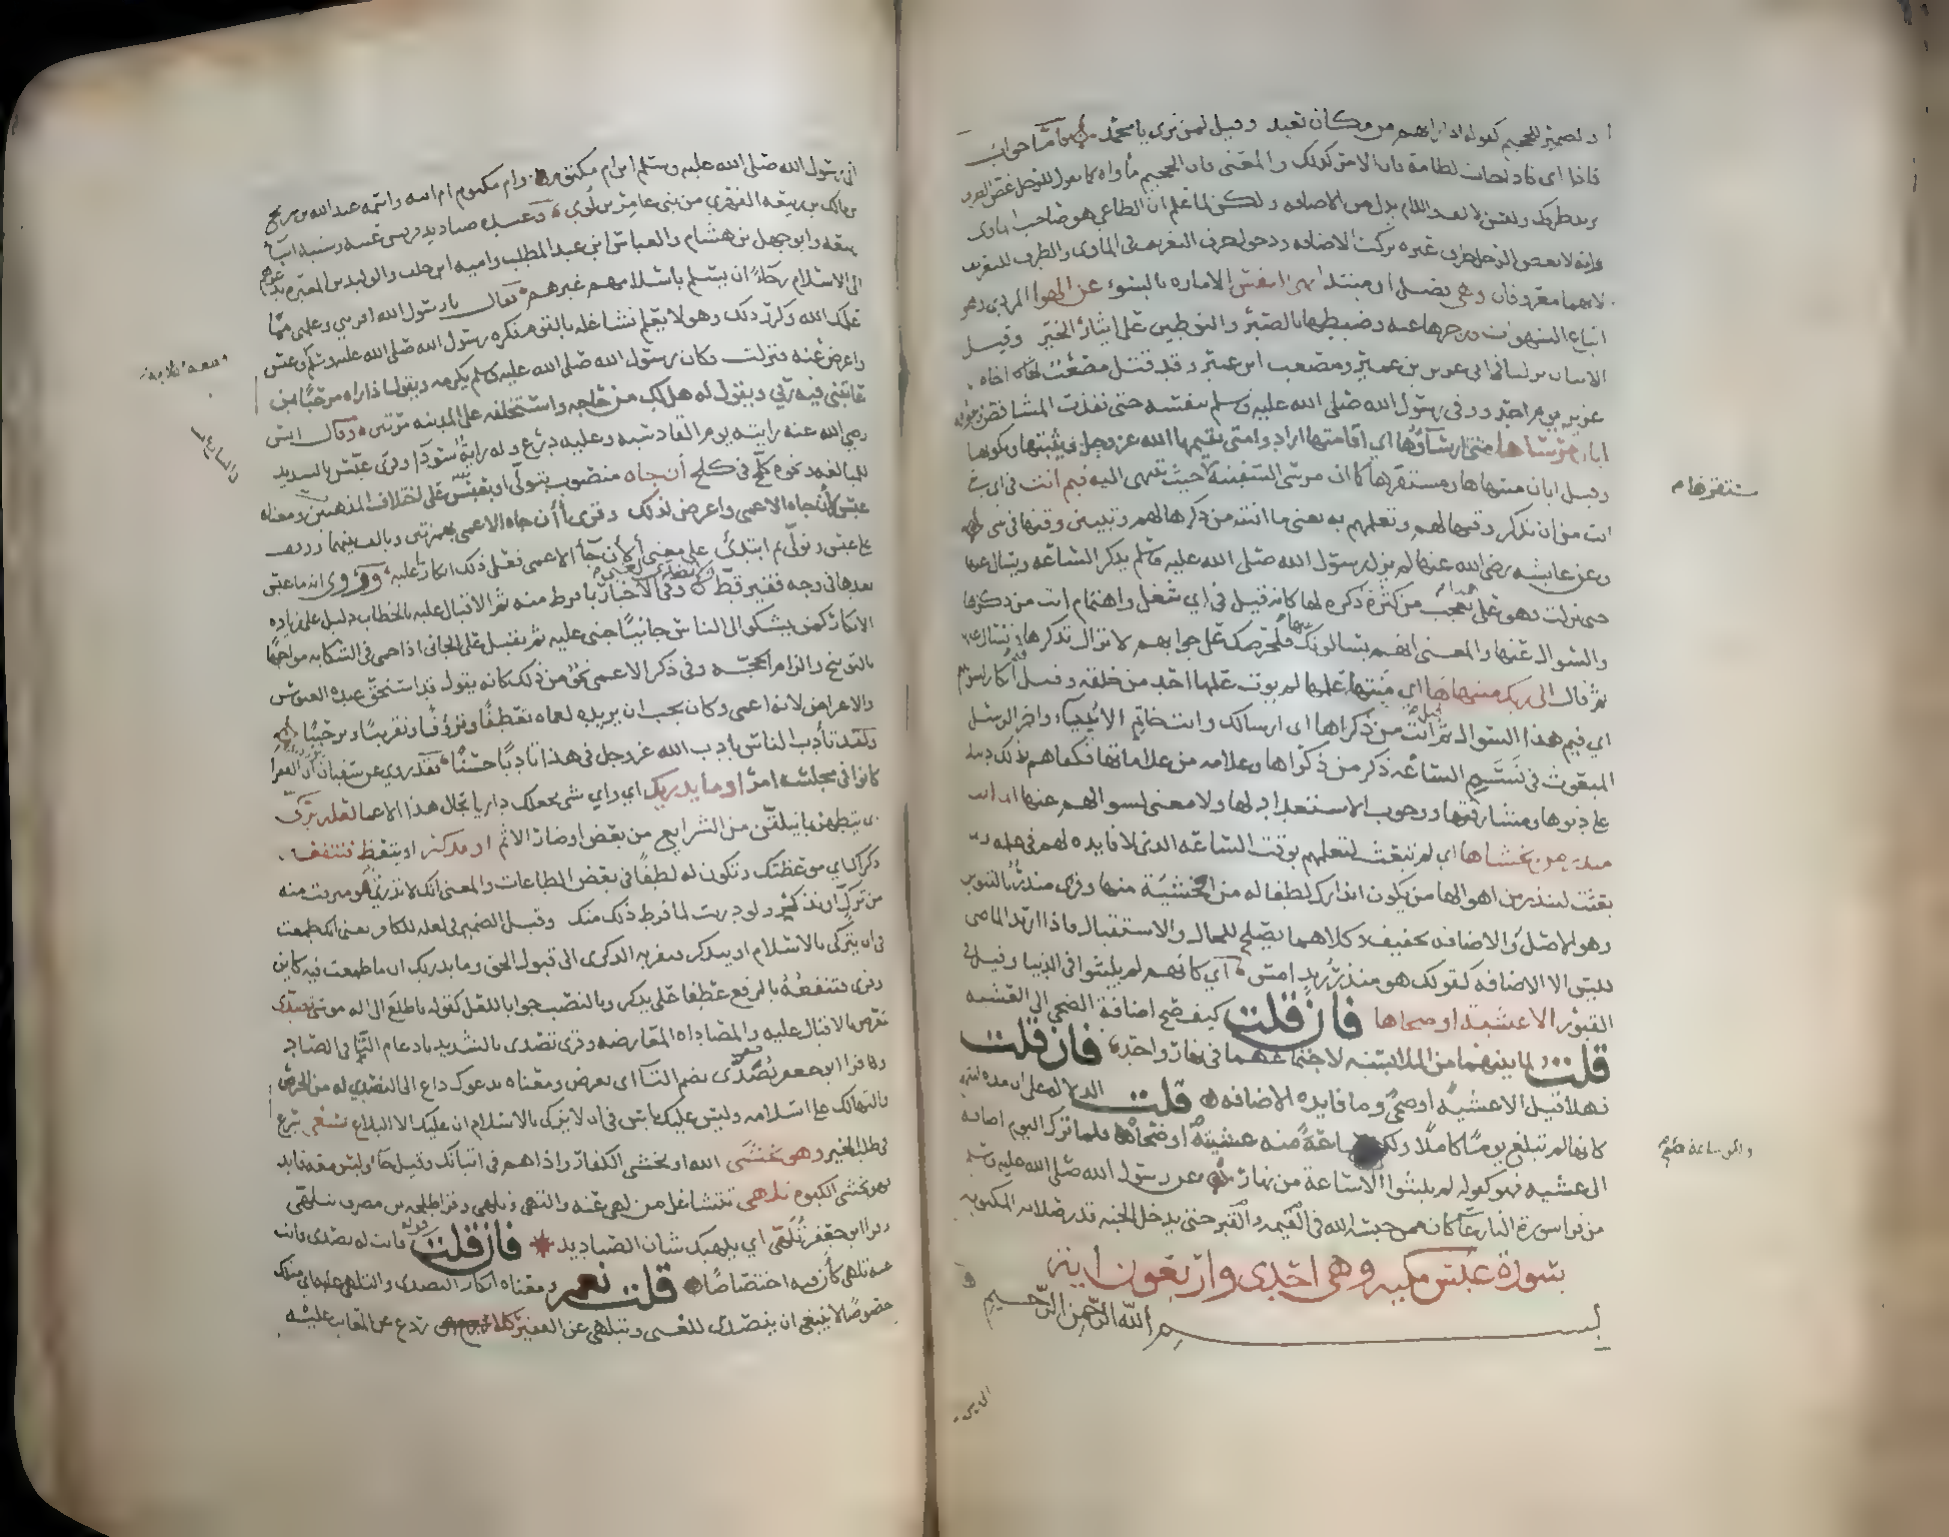 والضمير للجحيم كقوله اذا راتهم من مكان بعيد وقيل لمن ترى يا محمد فاما جواب
فاذا اي فاذا جات الطامة فان الامر كذلك والمعنى فان الجحيم ماواه كما تقول للرجل غض الطرف
تريد طرفك وليس الالف واللام بدل من الاضافه ولكن لما علم ان الطاغي هو صاحب الماوى
وانه لا يغض الرجل طرف غيره تركت الاضافه ودخول حرف التعريف في الماوى والطرف للتعريف
لانهما معروفان وهي فصل او مبتدا ونهى النفس الاماره بالسوء عن الهوا المردي وهو
اتباع الشهوات وزجرها عنه وضبطها بالصبر والتوطين على ايثار الخير وقيل
الايتان نزلتا في ابي عزيز بن عمير ومصعب ابن عمير وقد قتل مصعب اخاه
عزيز يوم احد ووقى رسول الله صلى الله عليه وسلم بنفسه حتى نفذت المشاقص في جوفه
ايان مرساها متى ارساؤها اي اقامتها اراد وامتى يقيمها الله عز وجل ويثبتها ويكونها
وقيل ايان منتهاها ومستقرها كما ان مرسى السفينة حيث تنتهي اليه فيم انت في اي شي
انت من ان تذكر وقتها لهم وتعلمهم به يعني ما انت من ذكرها لهم وتبيين وقتها في شي
وعن عايشه رضي الله عنها لم يزل رسول الله صلى الله عليه وسلم يذكر الساعه ويسال عنها
حتى نزلت فهو على هذا تعجب من كثرة ذكره لها كانه قيل في اي شغل واهتمام انت من ذكرها
والسوال عنها والمعنى انهم يسالونك عنها فلحرصك على جوابهم لا تزال تذكرها وتسال عنها
ثم قال الى ربك منتهاها اي منتهى علمها لم يوت علمها احد من خلقه وقيل فيم انكار لسوالهم
اي فيم هذا السوال ثم قيل انت من ذكراها اي ارسالك وانت خاتم الانبياء واخر الرسل
المبعوث في نسم الساعه ذكر من ذكراها وعلامه من علاماتها فكفاهم بذلك دليلا
على دنوها ومشارفتها ووجوب الاستعداد لها ولا معنى لسوالهم عنها انما انت
منذر من يخشاها اي لم تبعث لتعلمهم بوقت الساعه الذي لا فايده لهم في علمه وانما
بعثت لتنذر من اهوالها من يكون انذارك لطفا له من الخشية منها وقرى منذر بالتنوين
وهو الاصل والاضافه تخفيف وكلاهما يصلح للحال والاستقبال فاذا اريد الماضي
فليس الا الاضافه كقولك هو منذر زيد امس اي كانهم لم يلبثوا في الدنيا وقيل في
القبور الا عشية او ضحاها فان قلت كيف صح اضافة الضحى الى العشيه
قلت لما بينهما من الملابسه لاجتماعهما في نهار واحد فان قلت
فهلا قيل الا عشية او ضحى وما فايده الاضافه قلت الدلاله على ان مده لبثهم
كانها لم تبلغ يوما كاملا ولكن ساعة منه عشيته او ضحاه فلما ترك اليوم اضافه
الى عشيه فهو كقوله لم يلبثوا الا ساعة من نهار عن رسول الله صلى الله عليه وسلم
من قرا سورة النازعات كان ممن حبسه الله في القيمه والقبر حتى يدخل الجنه قدر صلاه المكتوبه
سورة عبس مكيه وهي احدى واربعون اية
بسم الله الرحمن الرحيم
مستقرها م
اتى رسول الله صلى الله عليه وسلم ابن ام مكتوم وام مكتوم ام ابيه واسمه عبد الله بن شريح
بن مالك بن ربيعه الفهري من بني عامر بن لوي وعنده صناديد قريش عتبه وشيبه ابنا
ربيعه وابو جهل بن هشام والعباس ابن عبد المطلب واميه ابن خلف والوليد بن المغيره يدعوهم
الى الاسلام رجاء ان يسلم باسلامهم غيرهم فقال يا رسول الله اقرئني وعلمني مما
علمك الله وكرر ذلك وهو لا يعلم تشاغله بالقوم فكره رسول الله صلى الله عليه وسلم قطعه وعبس
واعرض عنه فنزلت وكان رسول الله صلى الله عليه وسلم يكرمه ويقول اذا راه مرحبا بمن
عاتبني فيه ربي ويقول له هل لك من حاجه واستخلفه على المدينه مرتين وقال انس
رضي الله عنه رايته يوم القادسيه وعليه درع وله راية سودا وقرى عبس بالتشديد
للمبالغه ونحوه كلح في كلح ان جاه منصوب بتولى او بعبس على اختلاف المذهبين ومعناه
عبس لان جاه الاعمى واعرض لذلك وقرى اان جاه الاعمى بهمزتين وبالف بينهما ووقف
على عبس وتولى ثم ابتدى على معنى االان جا الاعمى فعل ذلك انكارا عليه وروي انه ما عبس
بعدها في وجه فقير قط ولا تصدى لغني وفي الاخبار بما فرط منه ثم الاقبال عليه بالخطاب دليل على زياده
الانكار كمن يشكو الى الناس جانيا جنى عليه ثم يقبل على الجاني اذا حمي في الشكايه مواجها
بالتوبيخ والزام الحجه وفي ذكر الاعمى نحو من ذلك كانه يقول قد استحق عنده العبوس
والاعراض لانه اعمى وكان يجب ان يزيده لعماه تعطفا وترؤفا وتقريبا وترحيبا
ولقد تادب الناس بادب الله عز وجل في هذا تادبا حسنا فقد روي عن سفيان ان الفقرا
كانوا في مجلسه امرا وما يدريك اي واي شي يجعلك داريا بحال هذا الاعمى لعله يزكى
اي يتطهر بما يتلقن من الشرايع من بعض اوضار الاثم او يذكر او يتعظ فتنفعه
ذكراك اي موعظتك وتكون له لطفا في بعض الطاعات والمعنى انك لا تدري ما هو مترقب منه
من تزك او تذكر ولو دريت لما فرط ذلك منك وقيل الضمير في لعله للكافر يعني انك طمعت
في ان يتزكى بالاسلام او يتذكر فتقربه الذكرى الى قبول الحق وما يدريك ان ما طمعت فيه كاين
وقرى فتنفعه بالرفع عطفا على يذكر وبالنصب جوابا للعل كقوله فاطلع الى اله موسى تصدى
تعرض بالاقبال عليه والمصاداه المعارضه وقرى تصدى بالتشديد بادغام التا في الصاد
وقرا ابو جعفر تصدى بضم التا اي تعرض ومعناه يدعوك داع الى التصدي له من الحرص
والتهالك على اسلامه وليس عليك باس في ان لا يزكى بالاسلام ان عليك الا البلاغ يسعى يسرع
في طلب الخير وهو يخشى الله او يخشى الكفار واذاهم في اتيانك وقيل جا وليس معه قايد
فهو يخشى الكبوه تلهى تتشاغل من لهي عنه والتهى وتلهى وقرا طلحه بن مصرف تتلهى
وقرا ابو جعفر تلهى اي يلهيك شان الصناديد فان قلت قوله فانت له تصدى فانت
عنه تلهى كان فيه اختصاصا قلت نعم ومعناه انكار التصدي والتلهي عليه اي مثلك
خصوصا لا ينبغي ان يتصدى للغني ويتلهى عن الفقير كلا ردع عن المعاتب عليه